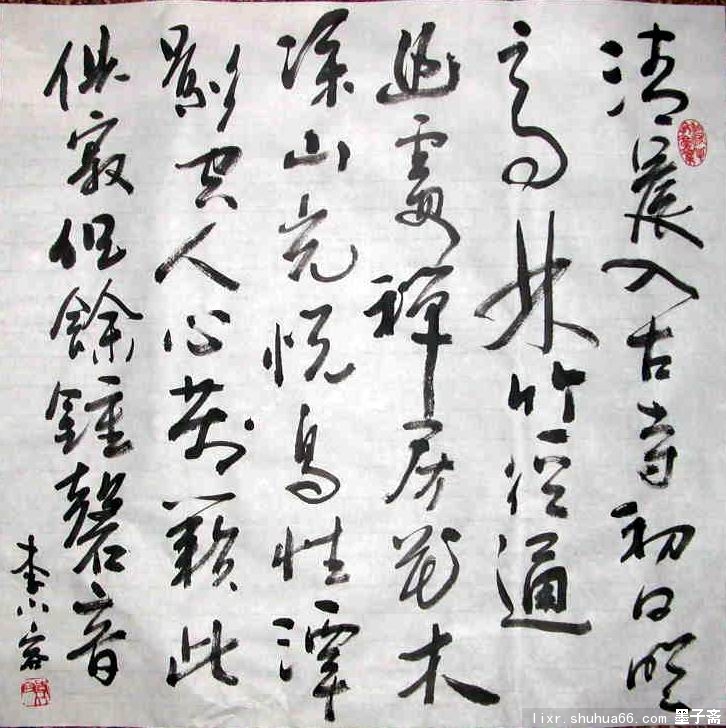 清晨入古寺初日照
高林竹徑通
幽處禪房花木
深山光悦鳥性潭
影空人心萬籟此
俱寂但餘鍾磬音
李小容
lixr.shuhua66.com 墨子斋